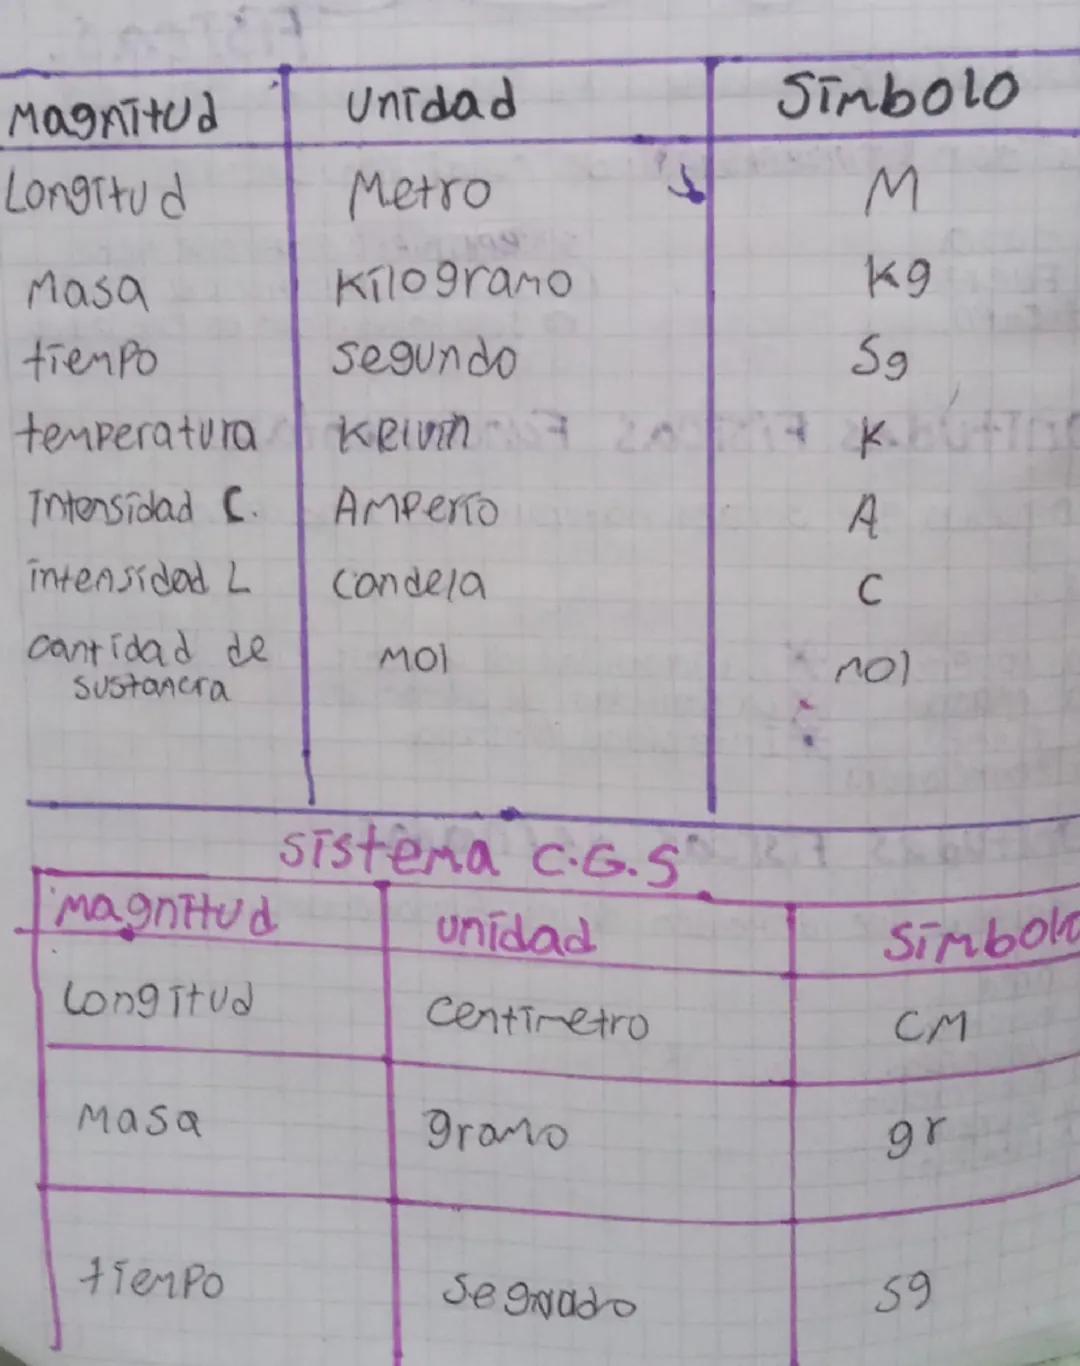 Magnitud Unidad Símbolo
Longitud Metro M
Masa Kilogramo kg
tiempo segundo Sg
temperatura Kelvin K
Intensidad C. Amperio A
intensidad L Candela C
Cantidad de sustancia Mol mol
Sistema C.G.S.
Magnitud Unidad Símbolo
Longitud Centímetro CM
Masa gramo gr
tiempo Segundo sg